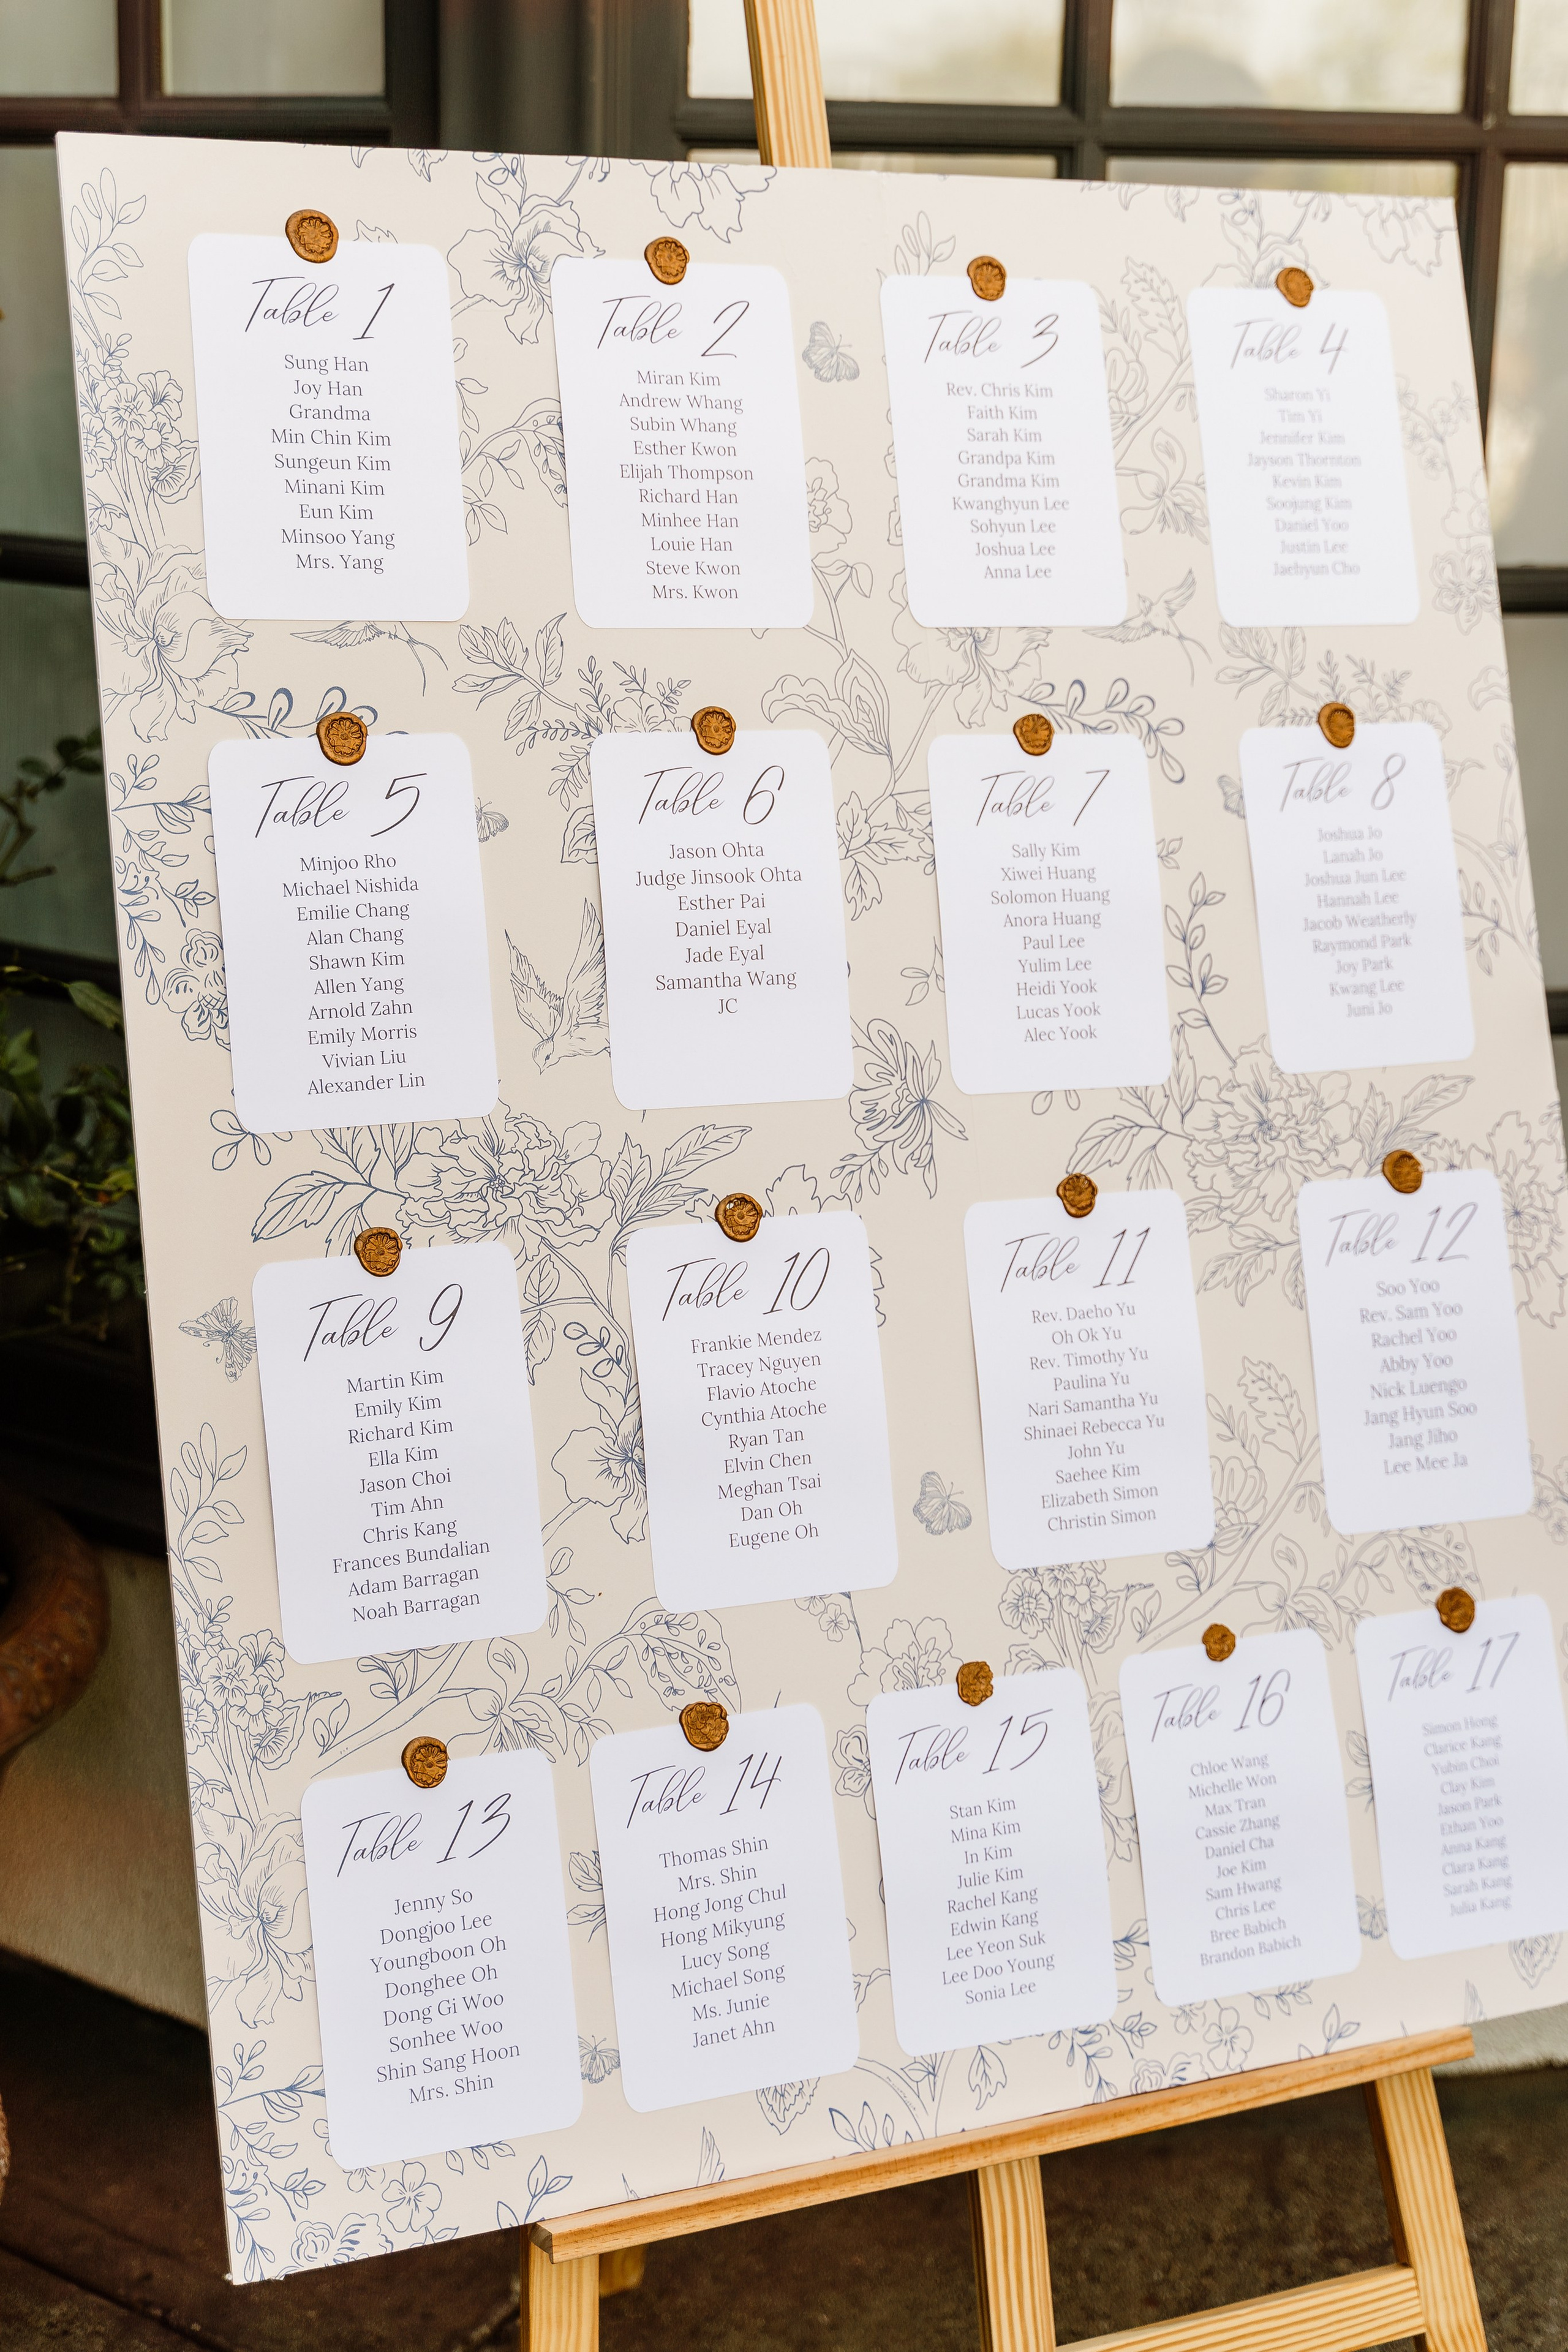 Table 1
Sung Han
Joy Han
Grandma
Min Chin Kim
Sungeun Kim
Minani Kim
Eun Kim
Minsoo Yang
Mrs. Yang
Table 2
Miran Kim
Andrew Whang
Subin Whang
Esther Kwon
Elijah Thompson
Richard Han
Minhee Han
Louie Han
Steve Kwon
Mrs. Kwon
Table 3
Rev. Chris Kim
Faith Kim
Sarah Kim
Grandpa Kim
Grandma Kim
Kwanghyun Lee
Sohyun Lee
Joshua Lee
Anna Lee
Table 4
Sharon Yi
Tim Yi
Jennifer Kim
Jayson Thornton
Kevin Kim
Soojung Kim
Daniel Yoo
Justin Lee
Jaehyun Cho
Table 5
Minjoo Rho
Michael Nishida
Emilie Chang
Alan Chang
Shawn Kim
Allen Yang
Arnold Zahn
Emily Morris
Vivian Liu
Alexander Lin
Table 6
Jason Ohta
Judge Jinsook Ohta
Esther Pai
Daniel Eyal
Jade Eyal
Samantha Wang
JC
Table 7
Sally Kim
Xiwei Huang
Solomon Huang
Anora Huang
Paul Lee
Yulim Lee
Heidi Yook
Lucas Yook
Alec Yook
Table 8
Joshua Jo
Lanah Jo
Joshua Jun Lee
Hannah Lee
Jacob Weatherly
Raymond Park
Joy Park
Kwang Lee
Juni Jo
Table 9
Martin Kim
Emily Kim
Richard Kim
Ella Kim
Jason Choi
Tim Ahn
Chris Kang
Frances Bundalian
Adam Barragan
Noah Barragan
Table 10
Frankie Mendez
Tracey Nguyen
Flavio Atoche
Cynthia Atoche
Ryan Tan
Elvin Chen
Meghan Tsai
Dan Oh
Eugene Oh
Table 11
Rev. Daeho Yu
Oh Ok Yu
Rev. Timothy Yu
Paulina Yu
Nari Samantha Yu
Shinaei Rebecca Yu
John Yu
Saehee Kim
Elizabeth Simon
Christin Simon
Table 12
Soo Yoo
Rev. Sam Yoo
Rachel Yoo
Abby Yoo
Nick Luengo
Jang Hyun Soo
Jang Jiho
Lee Mee Ja
Table 13
Jenny So
Dongjoo Lee
Youngboon Oh
Donghee Oh
Dong Gi Woo
Sonhee Woo
Shin Sang Hoon
Mrs. Shin
Table 14
Thomas Shin
Mrs. Shin
Hong Jong Chul
Hong Mikyung
Lucy Song
Michael Song
Ms. Junie
Janet Ahn
Table 15
Stan Kim
Mina Kim
In Kim
Julie Kim
Rachel Kang
Edwin Kang
Lee Yeon Suk
Lee Doo Young
Sonia Lee
Table 16
Chloe Wang
Michelle Won
Max Tran
Cassie Zhang
Daniel Cha
Joe Kim
Sam Hwang
Chris Lee
Bree Babich
Brandon Babich
Table 17
Simon Hong
Clarice Kang
Yubin Choi
Clay Kim
Jason Park
Ethan Yoo
Anna Kang
Clara Kang
Sarah Kang
Julia Kang